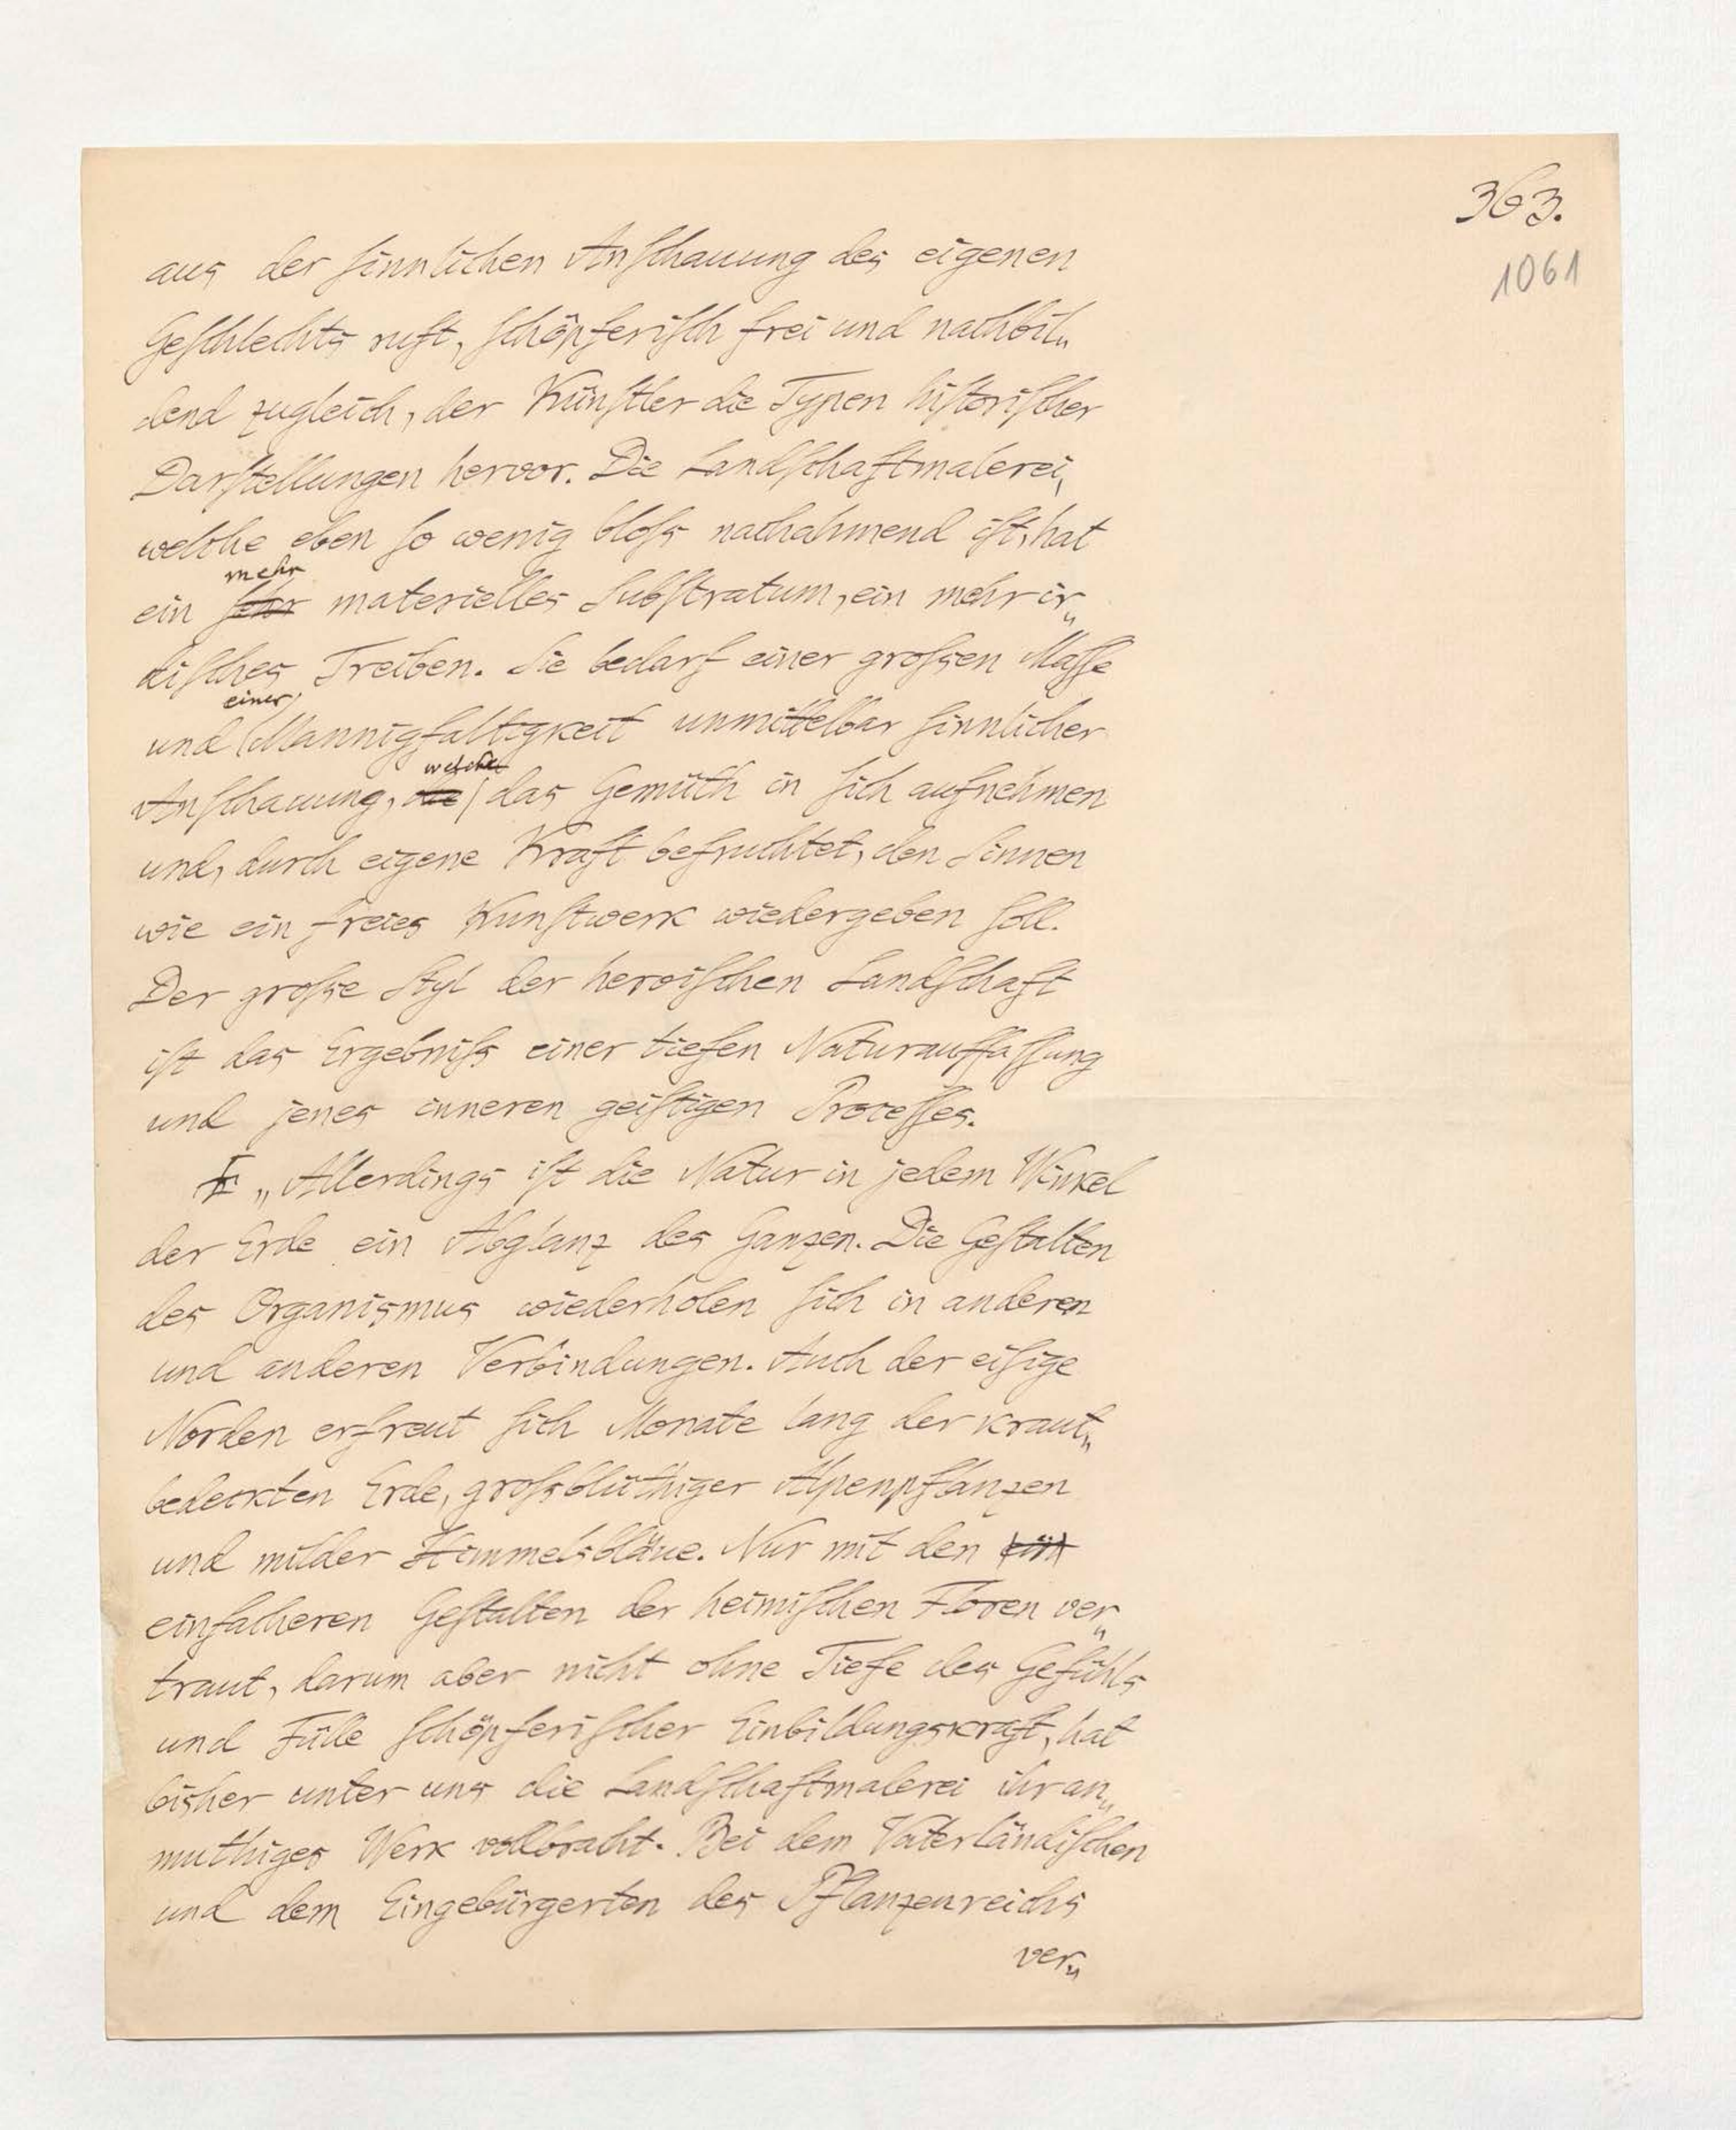 363.
1061
aus der sinnlichen Anschauung des eigenen
Geschlechts ruft, schöpferisch frei und nachbil„
dend zugleich, der Künstler die Typen historischer
Darstellungen hervor. Die Landschaftmalerei,
welche eben so wenig bloss nachahmend ist, hat
mehr
ein sehr materielles Substratum, ein mehr ir„
disches Treiben. Sie bedarf einer grossen Masse
einer
und Mannigfaltigkeit unmittelbar sinnlicher
welche
Anschauung, die das Gemüth in sich aufnehmen
und, durch eigene Kraft befruchtet, den Sinnen
wie ein freies Kunstwerk wiedergeben soll.
Der grosse Styl der heroischen Landschaft
ist das Ergebniss einer tiefen Naturauffassung
und jenes inneren geistigen Processes.
„Allerdings ist die Natur in jedem Winkel
der Erde ein Abglanz des Ganzen. Die Gestalten
des Organismus wiederholen sich in anderen
und anderen Verbindungen. Auch der eisige
Norden erfreut sich Monate lang der kraut„
bedeckten Erde, grossblüthiger Alpenpflanzen
und milder Himmelsbläue. Nur mit den ein
einfacheren Gestalten der heimischen Floren ver„
traut, darum aber nicht ohne Tiefe des Gefühls
und Fülle schöpferischer Einbildungskraft, hat
bisher unter uns die Landschaftmalerei ihr an„
muthiges Werk vollbracht. Bei dem Vaterländischen
und dem Eingebürgerten des Pflanzenreichs
ver„